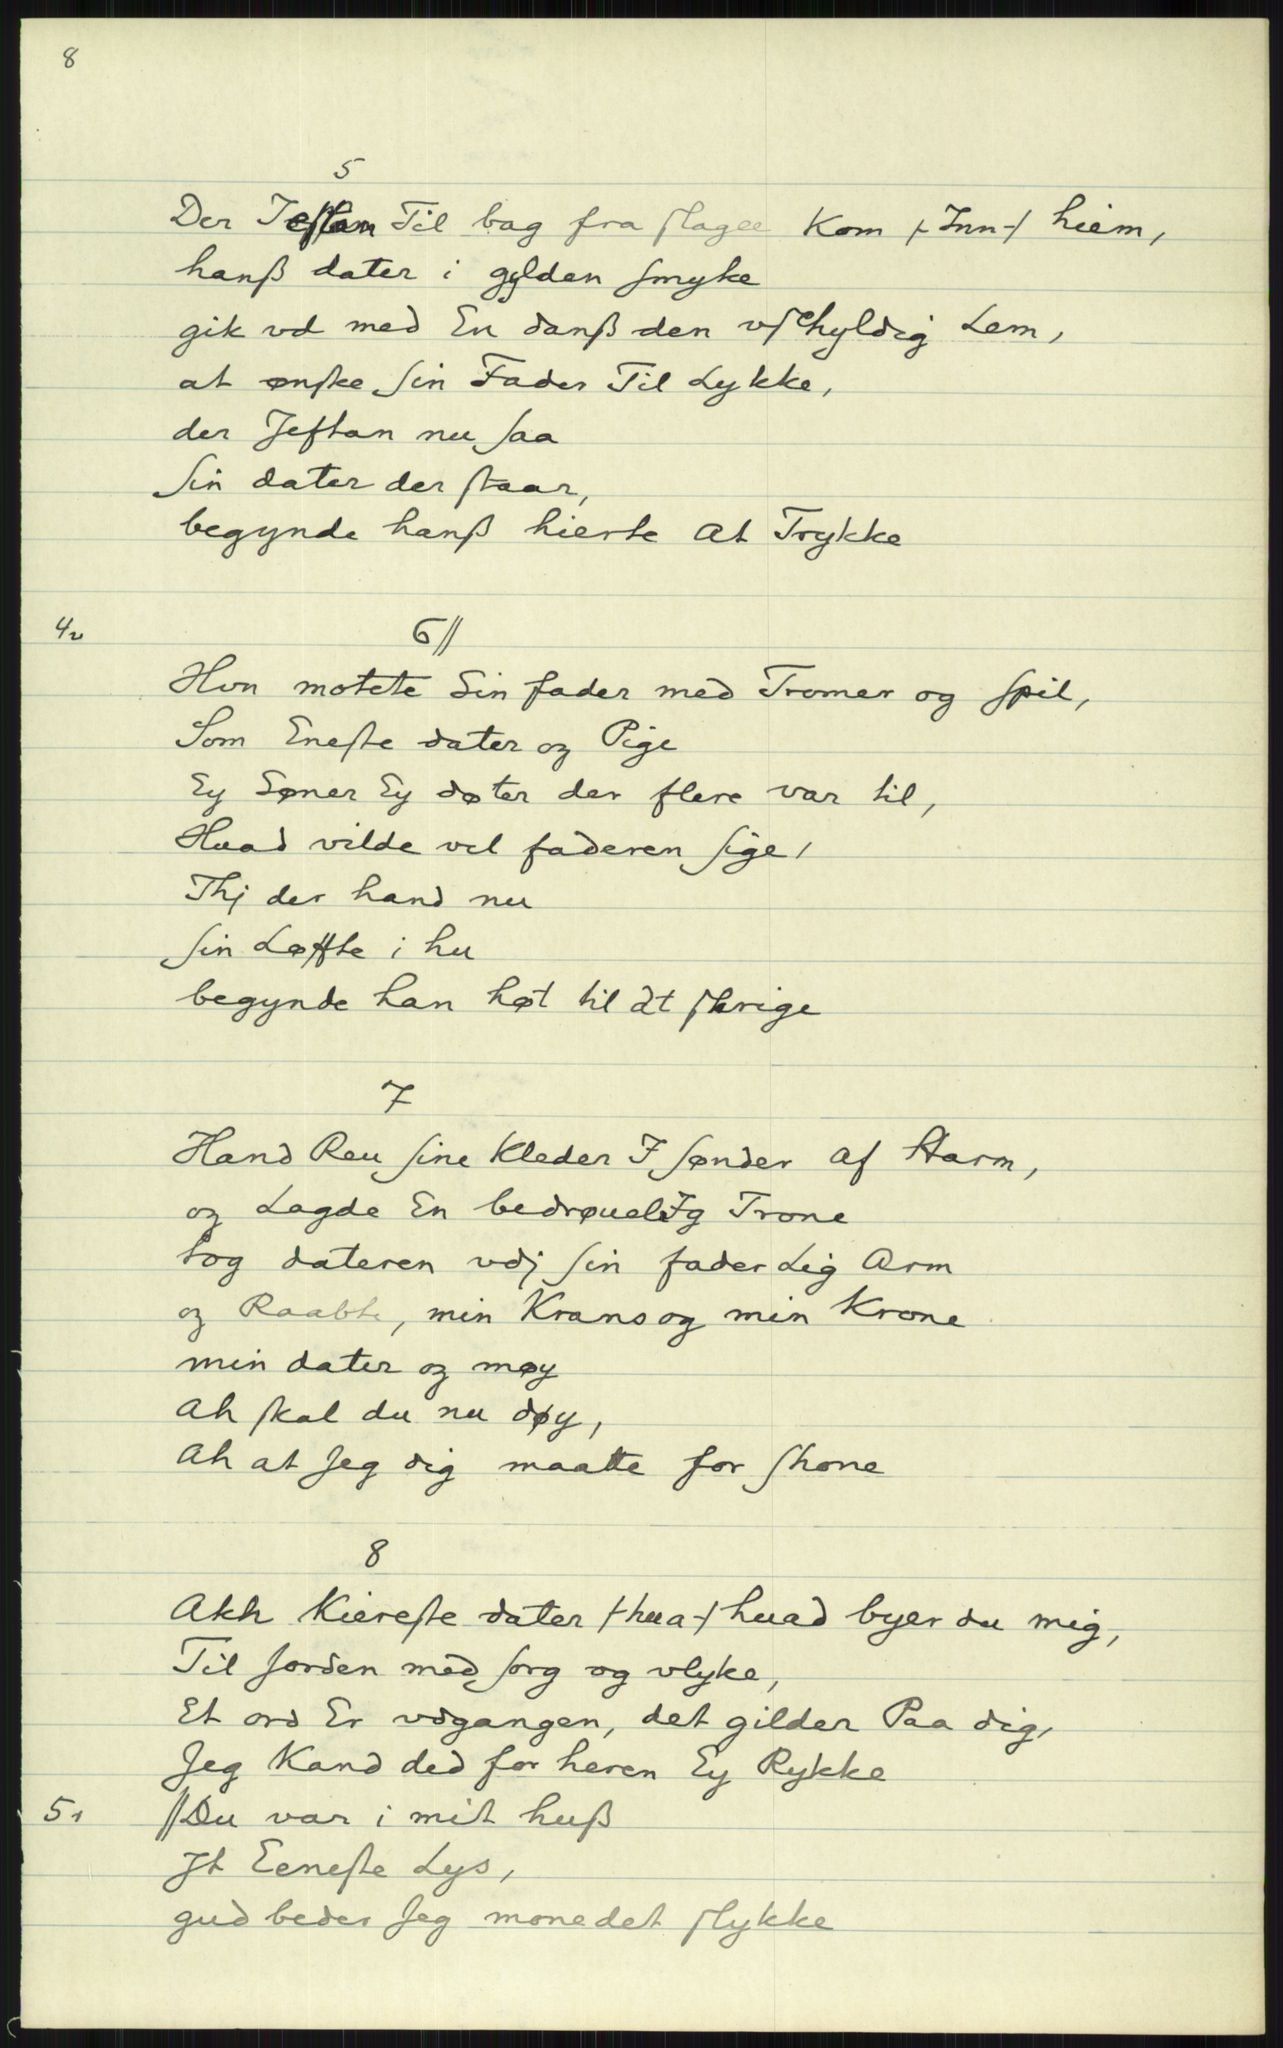 8
5
Der Jeftan Til bag fra slagee Kom /-Inn-/ hiem,
hanß dater i gylden smyke
gik vd med En danß den vschyldig Lem,
at ønske sin Fader Til Lykke,
der Jeftan nu saa
sin dater der staar,
begynde hanß hierte At Trykke
4v 6//
Hvn motete Sin fader med Tromer og spil,
Som Eneste dater og Pige
Ey Søner Ey døter der flere var til,
Huad vilde vel faderen sige,
Thj der hand nu
sin Løffte i hu
begynde han høt til At skrige
7
Hand Reu sine Kleder I sønder af Harm,
og Lagde En bedrøuelIg Trone
tog dateren vdj sin fader Lig Arm
og Raabte, min Krans og min Krone
min dater og møy
Ah skal du nu døy,
Ah at Jeg dig maatte for skone
8
Akh Kiereste dater /-hua-/ huad byer du mig,
Til Jorden med sorg og vlyke,
Et ord Er vdgangen, det gilder Paa dig,
Jeg Kand ded for heren Ey Rykke
5r //Du var i mit huß
Jt Eeneste Lys,
gud beder Jeg mone det slykke